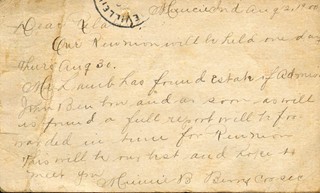 Muncie Ind Aug 21 '00
Dear
Our Reunion will be held one day
Thurs Aug 30.
Mr. Laub has found estate of
John Benton and as soon as will
is found a full report will be for
warded in time for Reunion
This will be our last and hope to
meet you
Minnie B